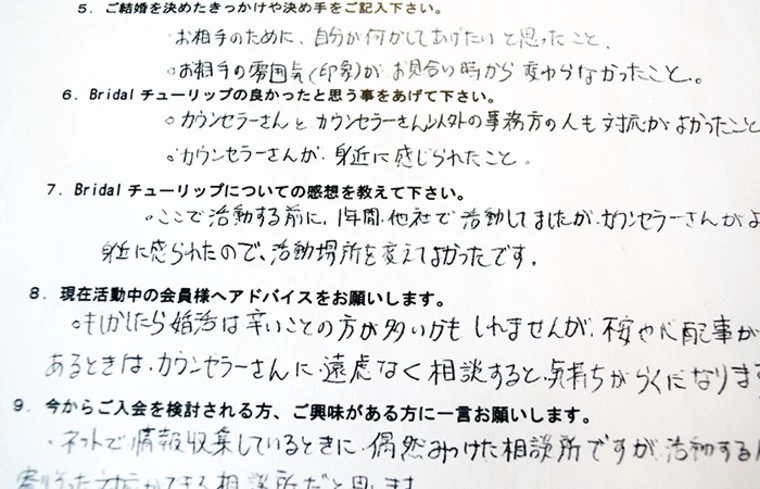 5. ご結婚を決めたきっかけや決め手をご記入下さい。
・お相手のために、自分が何かしてあげたいと思ったこと。
・お相手の雰囲気(印象)が、お見合い時から変わらなかったこと。
6. Bridal チューリップの良かったと思う事をあげて下さい。
・カウンセラーさんと カウンセラーさん以外の事務方の人も対応がよかったこと
・カウンセラーさんが、身近に感じられたこと。
7. Bridal チューリップについての感想を教えて下さい。
・ここで活動する前に、1年間、他社で活動してましたが、カウンセラーさんがよ
身近に感られたので、活動場所を変えてよかったです。
8. 現在活動中の会員様へアドバイスをお願いします。
・もしかしたら婚活は辛いことの方が多いかもしれませんが、不安や心配事が
あるときは、カウンセラーさんに遠慮なく相談すると、気持ちがらくになります
9. 今からご入会を検討される方、ご興味がある方に一言お願いします。
・ネットで情報収集しているときに、偶然みつけた相談所ですが、活動する
寄りそった対応ができる相談所だと思います